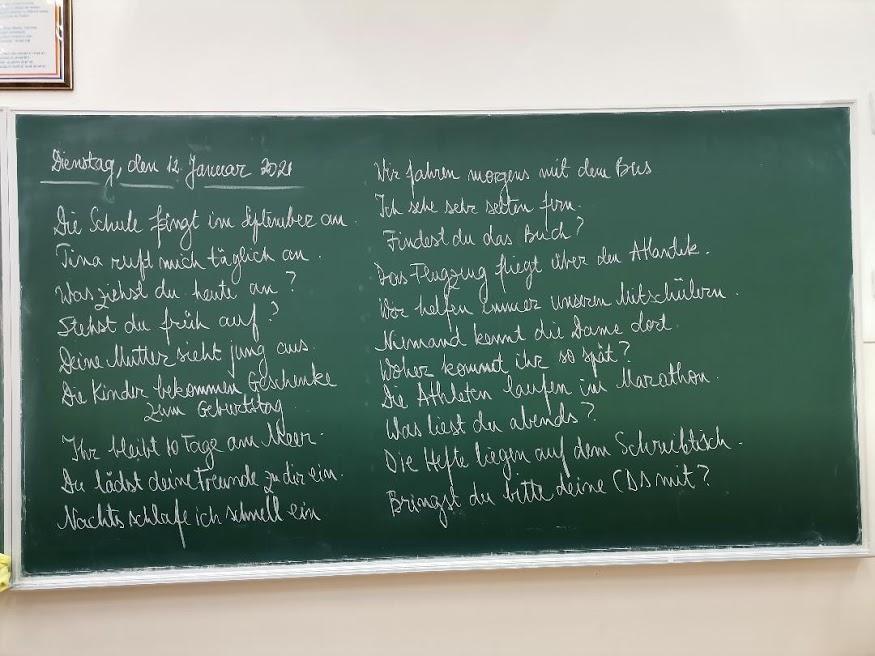 Dienstag, den 12. Januar 2021
Die Schule fängt im September an.
Tina ruft mich täglich an.
Was ziehst du heute an?
Stehst du früh auf?
Deine Mutter sieht jung aus.
Die Kinder bekommen Geschenke
zum Geburtstag.
Ihr bleibt 10 Tage am Meer.
Du lädst deine Freunde zu dir ein.
Nachts schlafe ich schnell ein
Wir fahren morgens mit dem Bus
Ich sehe sehr selten fern.
Findest du das Buch?
Das Flugzeug fliegt über den Atlantik.
Wir helfen immer unseren Mitschülern.
Niemand kennt die Dame dort.
Woher kommt ihr so spät?
Die Athleten laufen im Marathon.
Was liest du abends?
Die Hefte liegen auf dem Schreibtisch.
Bringst du bitte deine CDs mit?